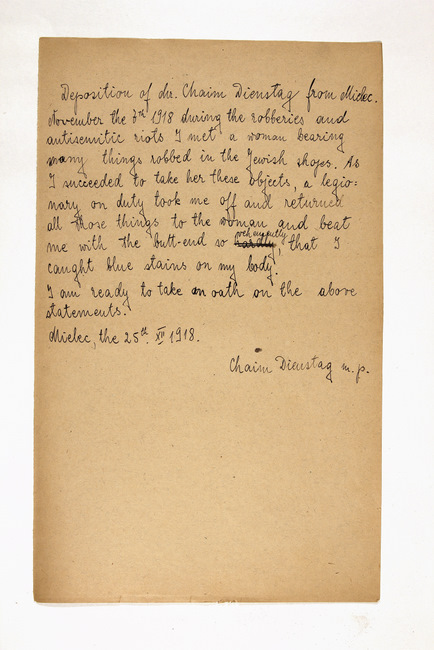 Deposition of dr. Chaim Dienstag from Mielec.
November the 3rd 1918 during the robberies and
antisemitic riots I met a woman bearing
many things robbed in the Jewish shops. As
I succeeded to take her these objects, a legio=
nary on duty took me off and returned
all those things to the woman and beat
me with the butt-end so hardly vehemently, that I
caught blue stains on my body.
I am ready to take an oath on the above
statements.
Mielec, the 25th XII 1918.
Chaim Dienstag m.p.